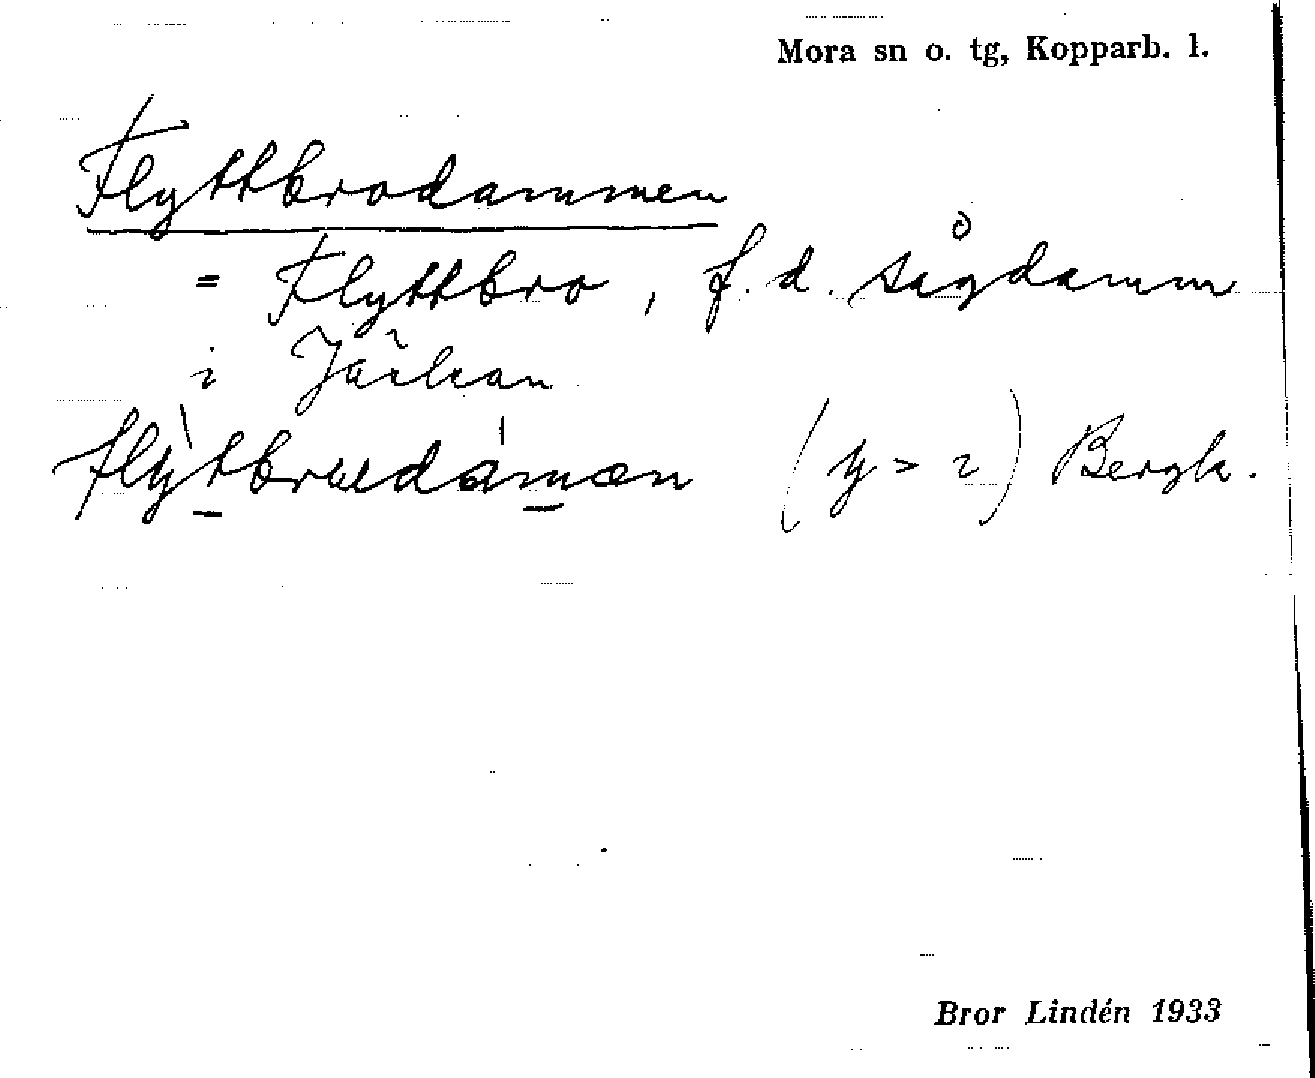 Mora sn o. tg, Kopparb. l.
Flyttbrodammen
= Flyttbro, f.d. sågdamm
i Jäilkan
flỳtbruedámæn (y > i) Bergk.
Bror Lindén 1933